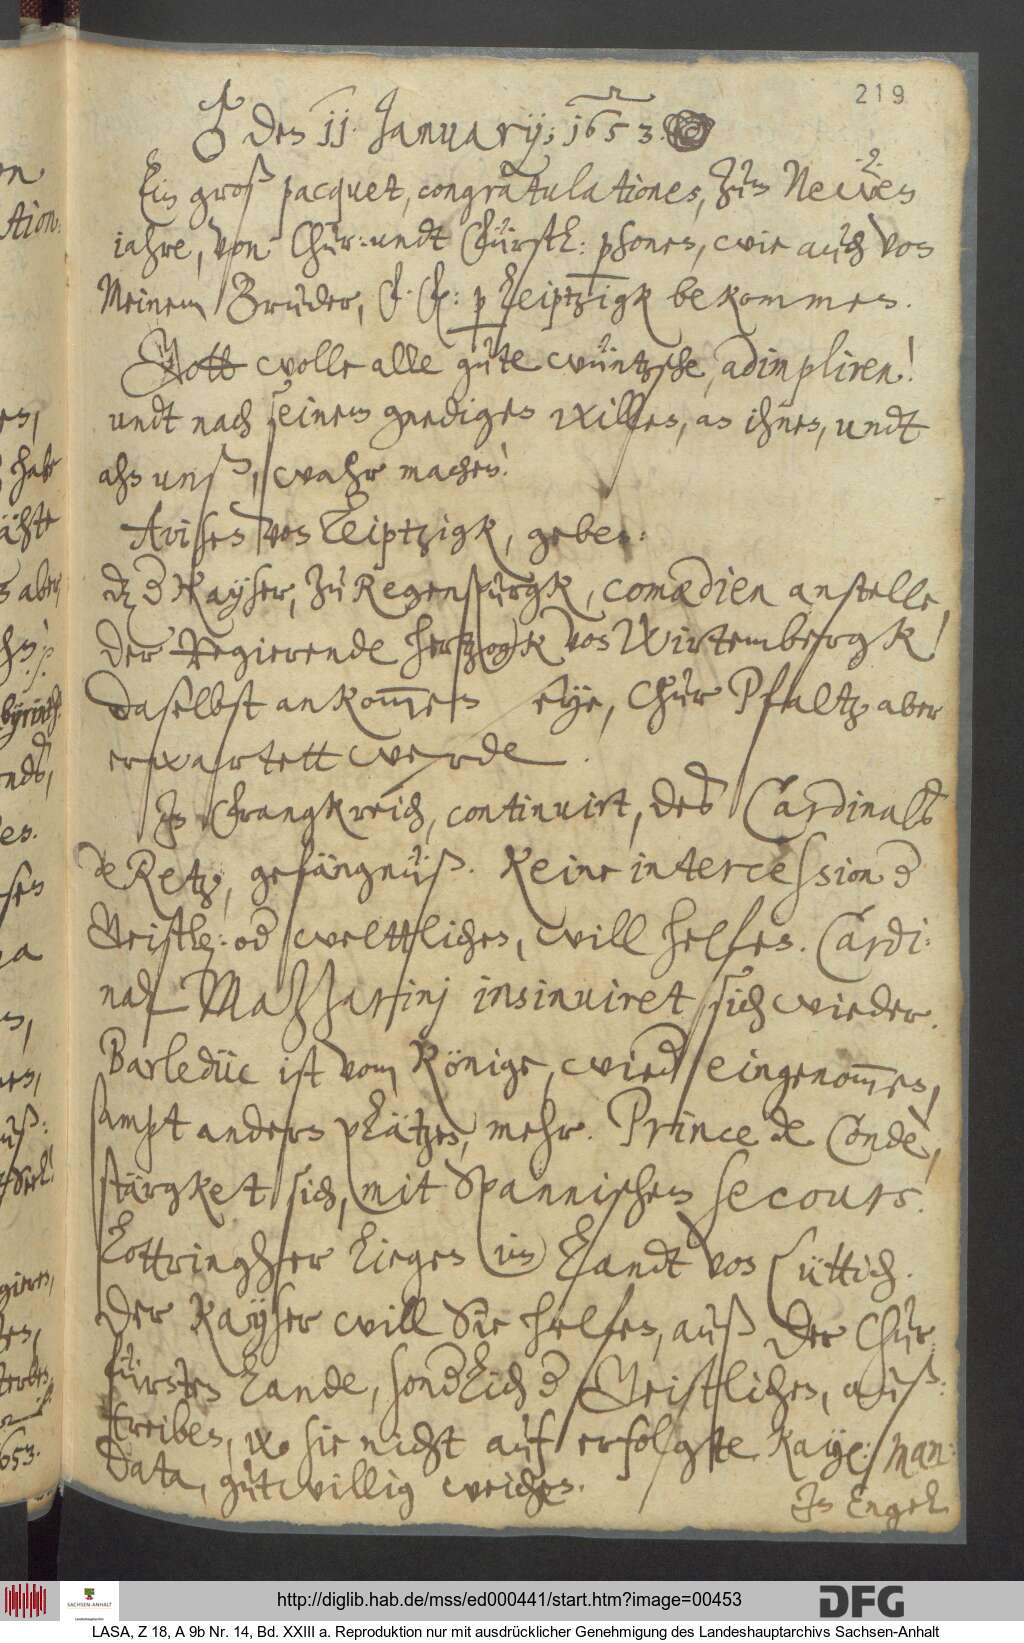 219
♂ den 11. January; 1653.
Ein groß pacquet, congratulationes, zum Neuen
iahre, von Chur: undt Fürstl: personen, wie auch von
Meinem Bruder, F. F: p Leiptzigk bekommen.
Gott wolle alle gute wüntzsche, adimpliren!
undt nach seinem gnedigen willen, an ihnen, undt
ahn unß, wahr machen!
Avisen von Leiptzigk, geben:
dz der Kayser, zu Regenspurgk, comædien anstelle,
der Regierende Hertzogk von Wirtembergk!
daselbst ankommen seye, Chur Pfaltz aber
erwartett werde.
In Frangkreich, continuirt, des Cardinals
de Retz, gefängnüß. Keine intercession der
Geistl: od weltlichen, will helfen. Cardi:
nal Mazzarinj insinuiret sich wieder.
Barleduc ist vom Könige, wied eingenommen,
sampt andern plätzen, mehr. Prince de Condè,
stärgket sich, mit Spannischem secours.
Lottringher liegen im Landt von Lüttich.
Der Kayser will Sie helfen, auß der Chur
fürsten Lande, sonderlich der Geistlichen, auß:
treiben, wo sie nicht auf erfolgte Kayl: Man:
data, gutwillig weichen.
In Engel
http://diglib.hab.de/mss/ed000441/start.htm?image=00453
SACHSEN-ANHALT
DFG
LASA, Z 18, A 9b Nr. 14, Bd. XXIII a. Reproduktion nur mit ausdrücklicher Genehmigung des Landeshauptarchivs Sachsen-Anhalt